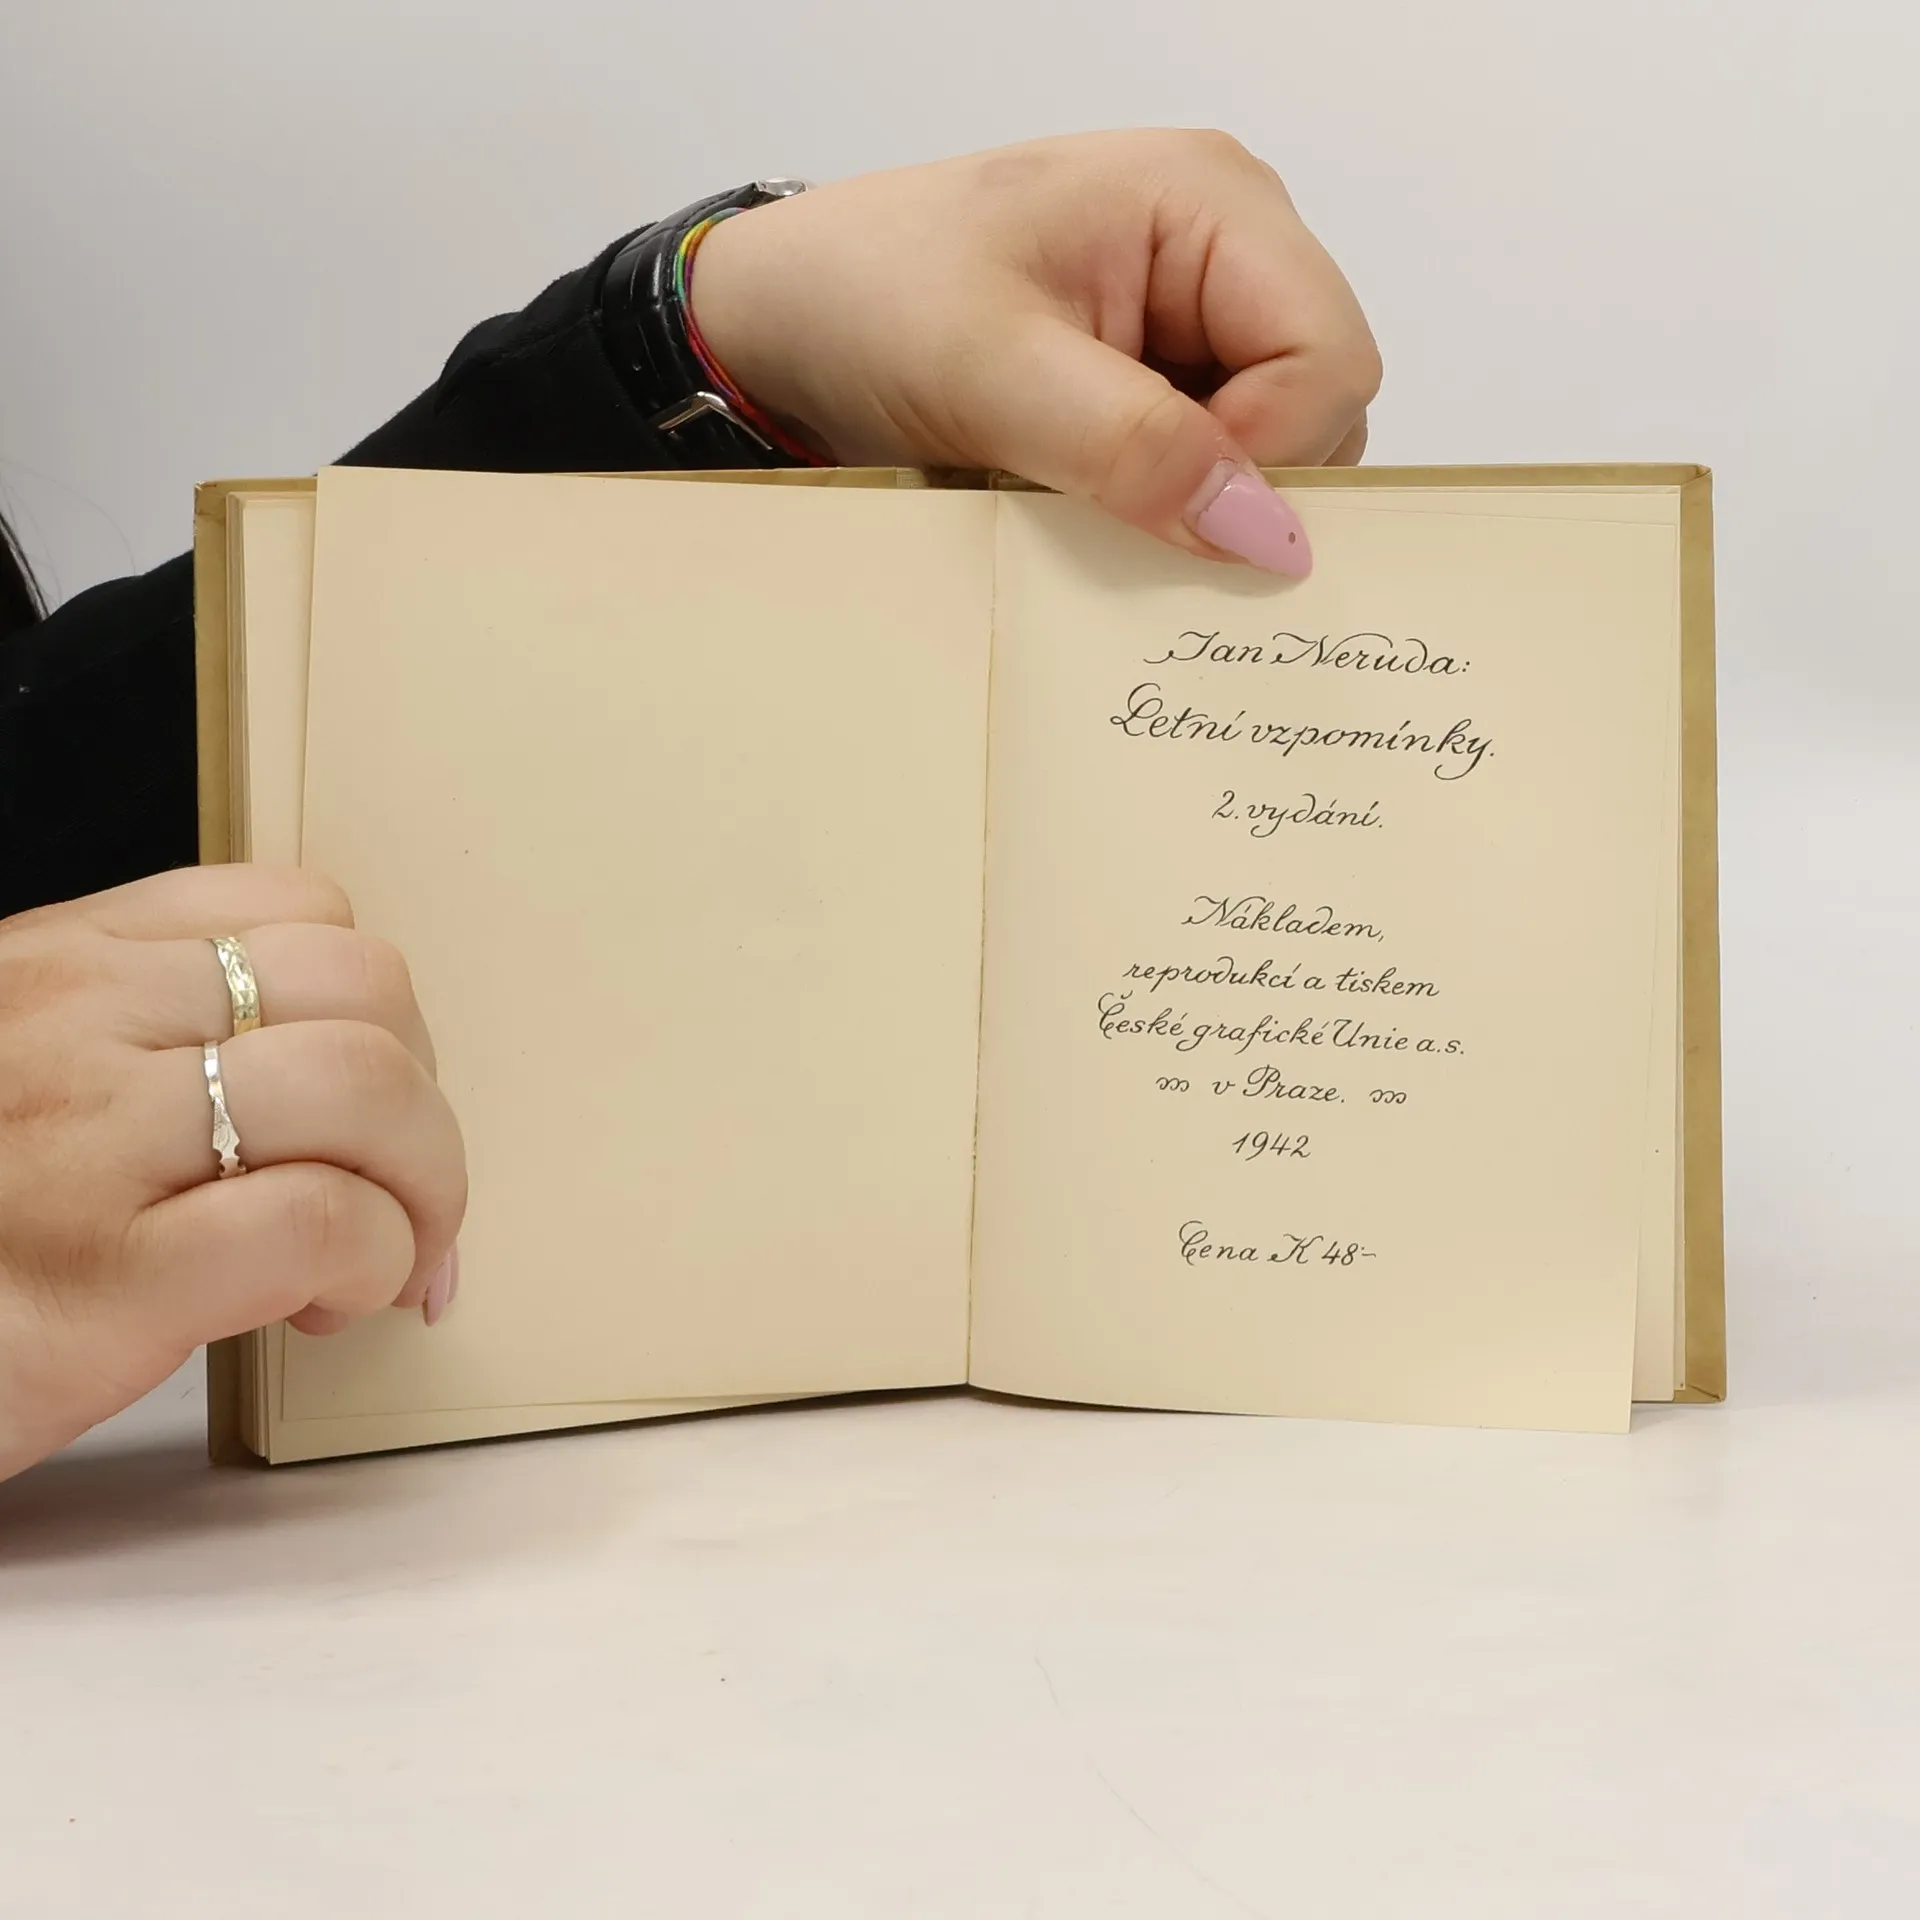 Jan Neruda:
Letní vzpomínky.
2. vydání.
Nákladem,
reprodukcí a tiskem
České grafické Unie a.s.
v Praze.
1942
Cena K 48:-